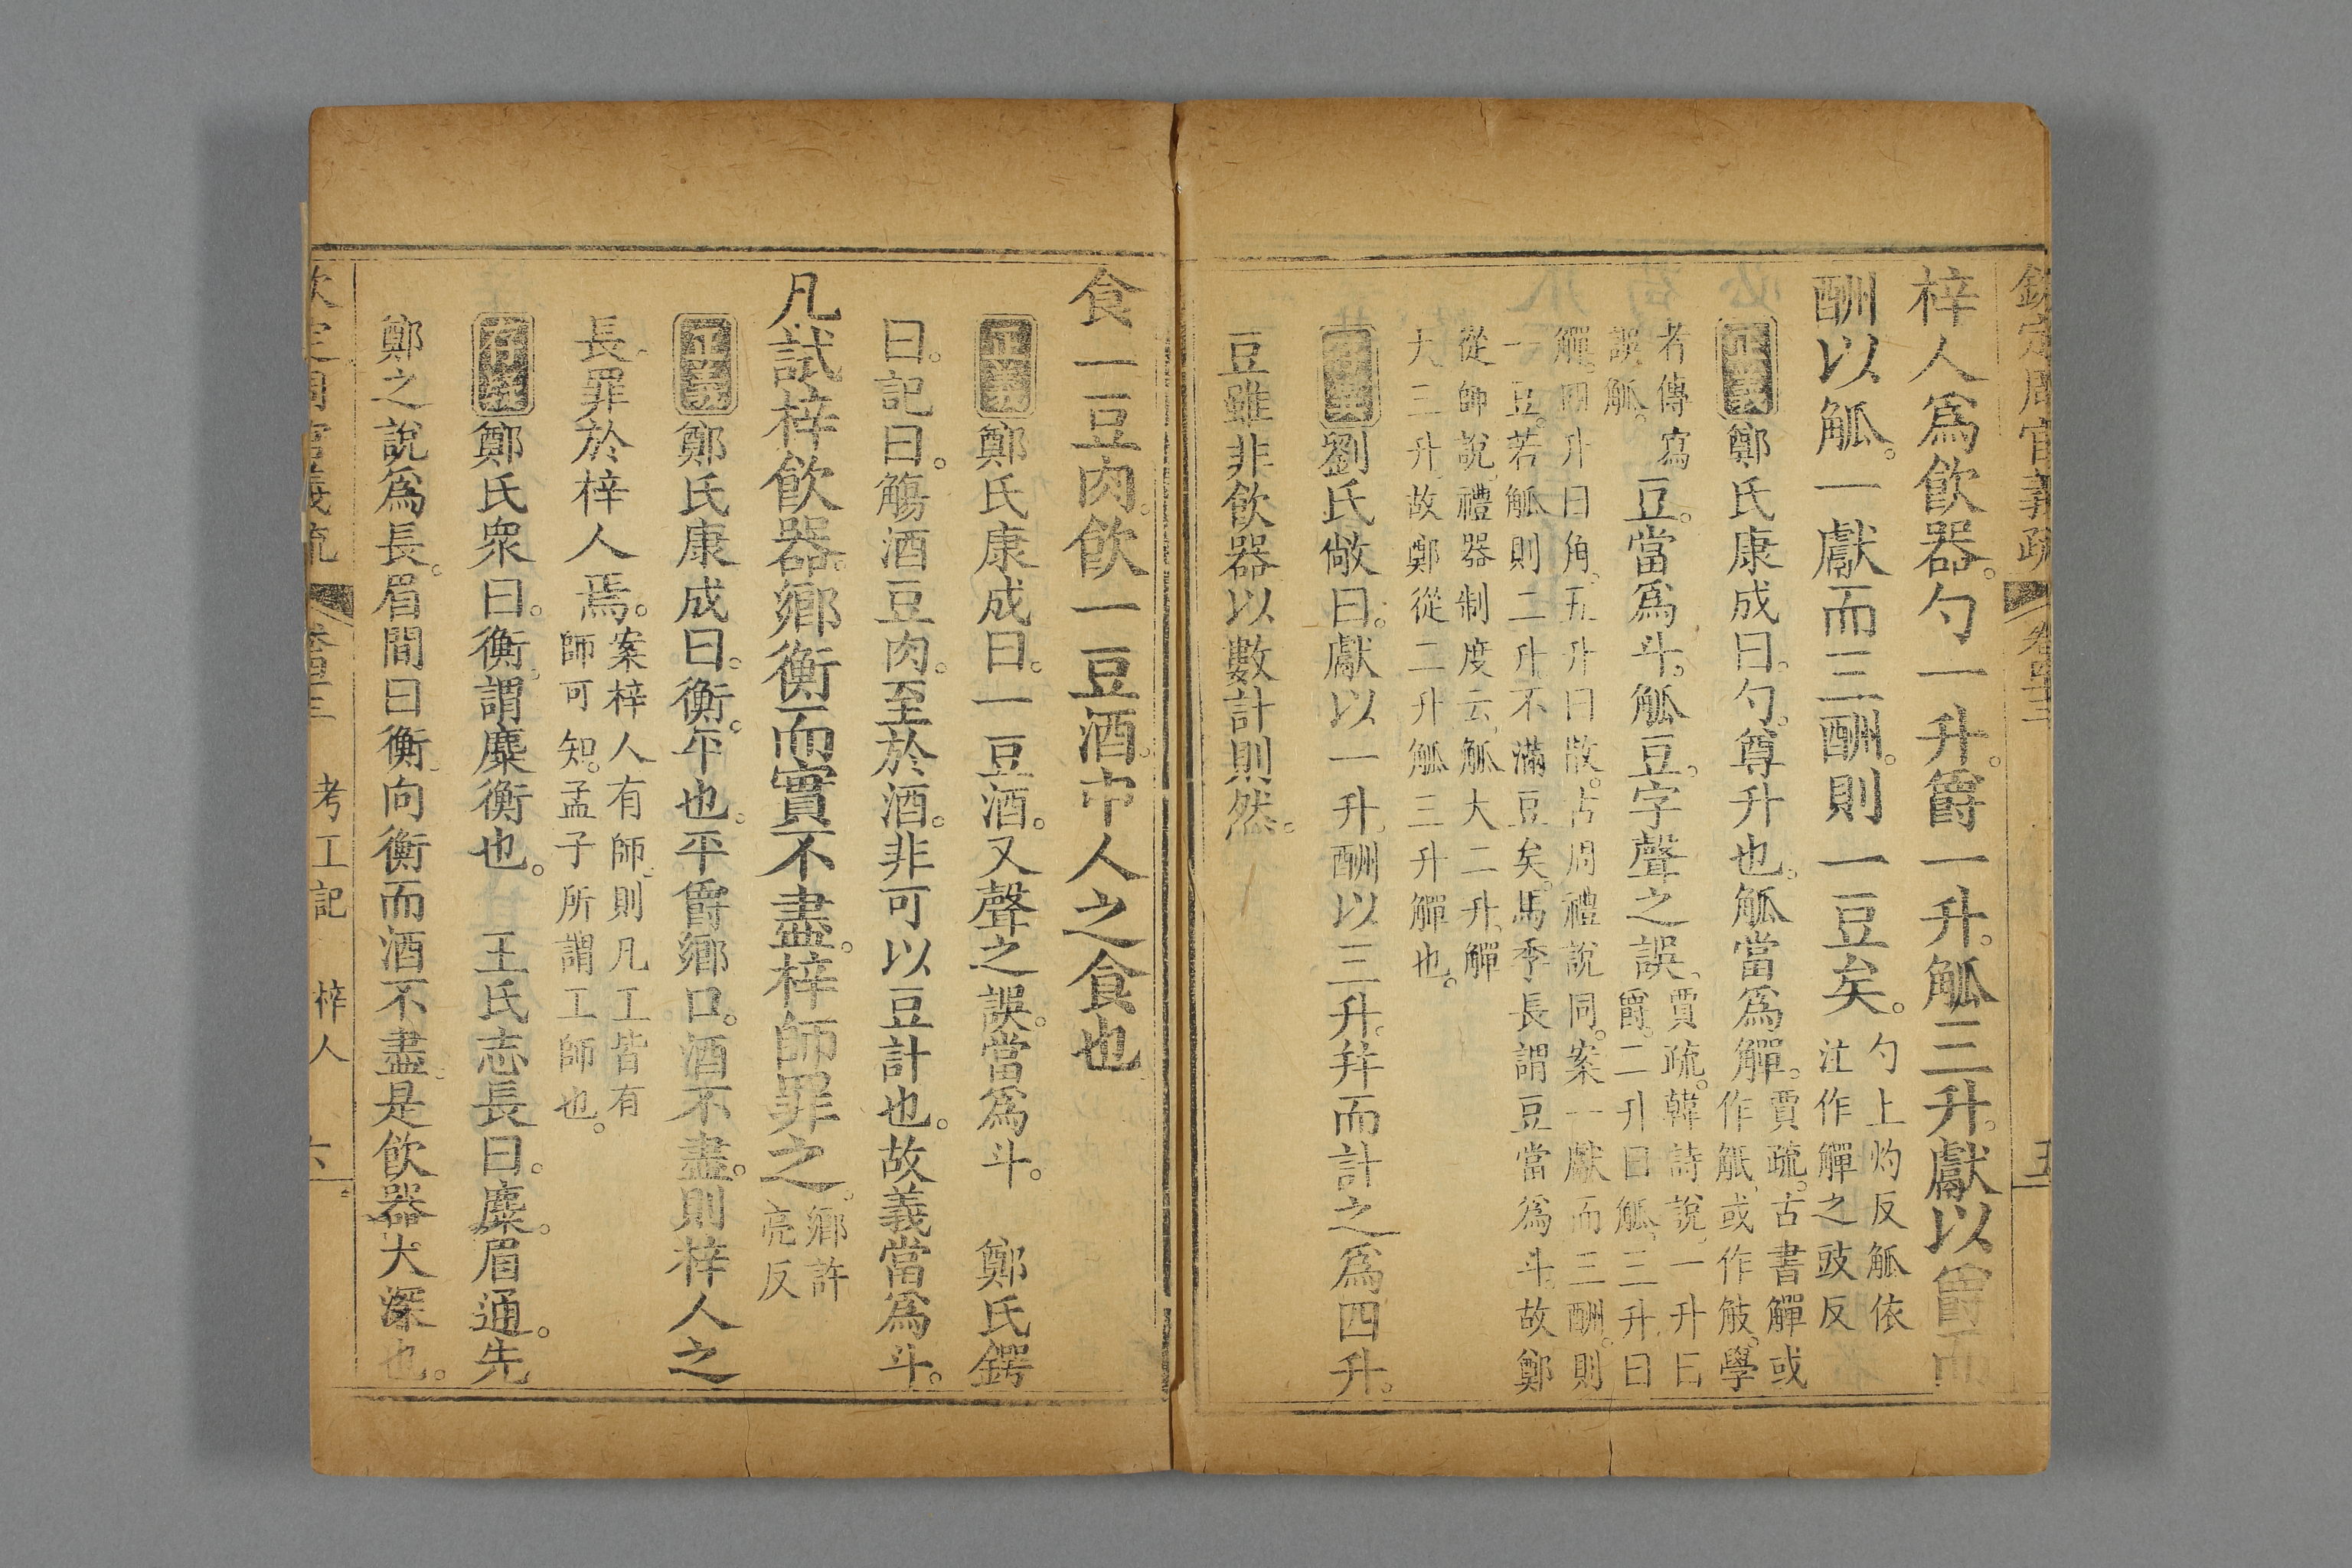 欽定周官義疏 卷四十三
梓人爲飲器。勺一升。爵一升。觚三升。獻以爵而
酬以觚。一獻而三酬。則一豆矣。勺上灼反觚依
注作觶之豉反
正義 鄭氏康成曰。勺。尊升也。觚當爲觶。賈疏。古書觶或
作觗。或作觙。學
者傳寫
誤觚。豆當爲斗。觚豆。字聲之誤。賈疏。韓詩說。一升曰
爵。二升曰觚。三升曰
觶。四升曰角。五升曰散。古周禮說同。案一獻而三酬。則
一豆。若觚則二升不滿豆矣。馬季長謂豆當爲斗。故鄭
從師說。禮器制度云。觚大二升。觶
大三升。故鄭從二升觚三升觶也。
劉氏敞曰。獻以一升。酬以三升。幷而計之爲四升。
豆雖非飲器以數計則然。
食一豆肉。飲一豆酒。中人之食也
正義 鄭氏康成曰。一豆酒。又聲之誤。當爲斗。 鄭氏鍔
曰。記曰。觴酒豆肉。至於酒。非可以豆計也。故義當爲斗。
凡試梓飲器。鄉衡而實不盡。梓師罪之。鄉許
亮反
正義 鄭氏康成曰。衡。平也。平爵鄉口。酒不盡。則梓人之
長。罪於梓人焉。案梓人有師。則凡工皆有
師可知。孟子所謂工師也。
鄭氏衆曰。衡。謂麋衡也。 王氏志長曰。麋。眉通。先
鄭之說爲長。眉間曰衡。向衡而酒不盡。是飲器大深也。
欽定周官義疏 卷四十三 考工記 梓人